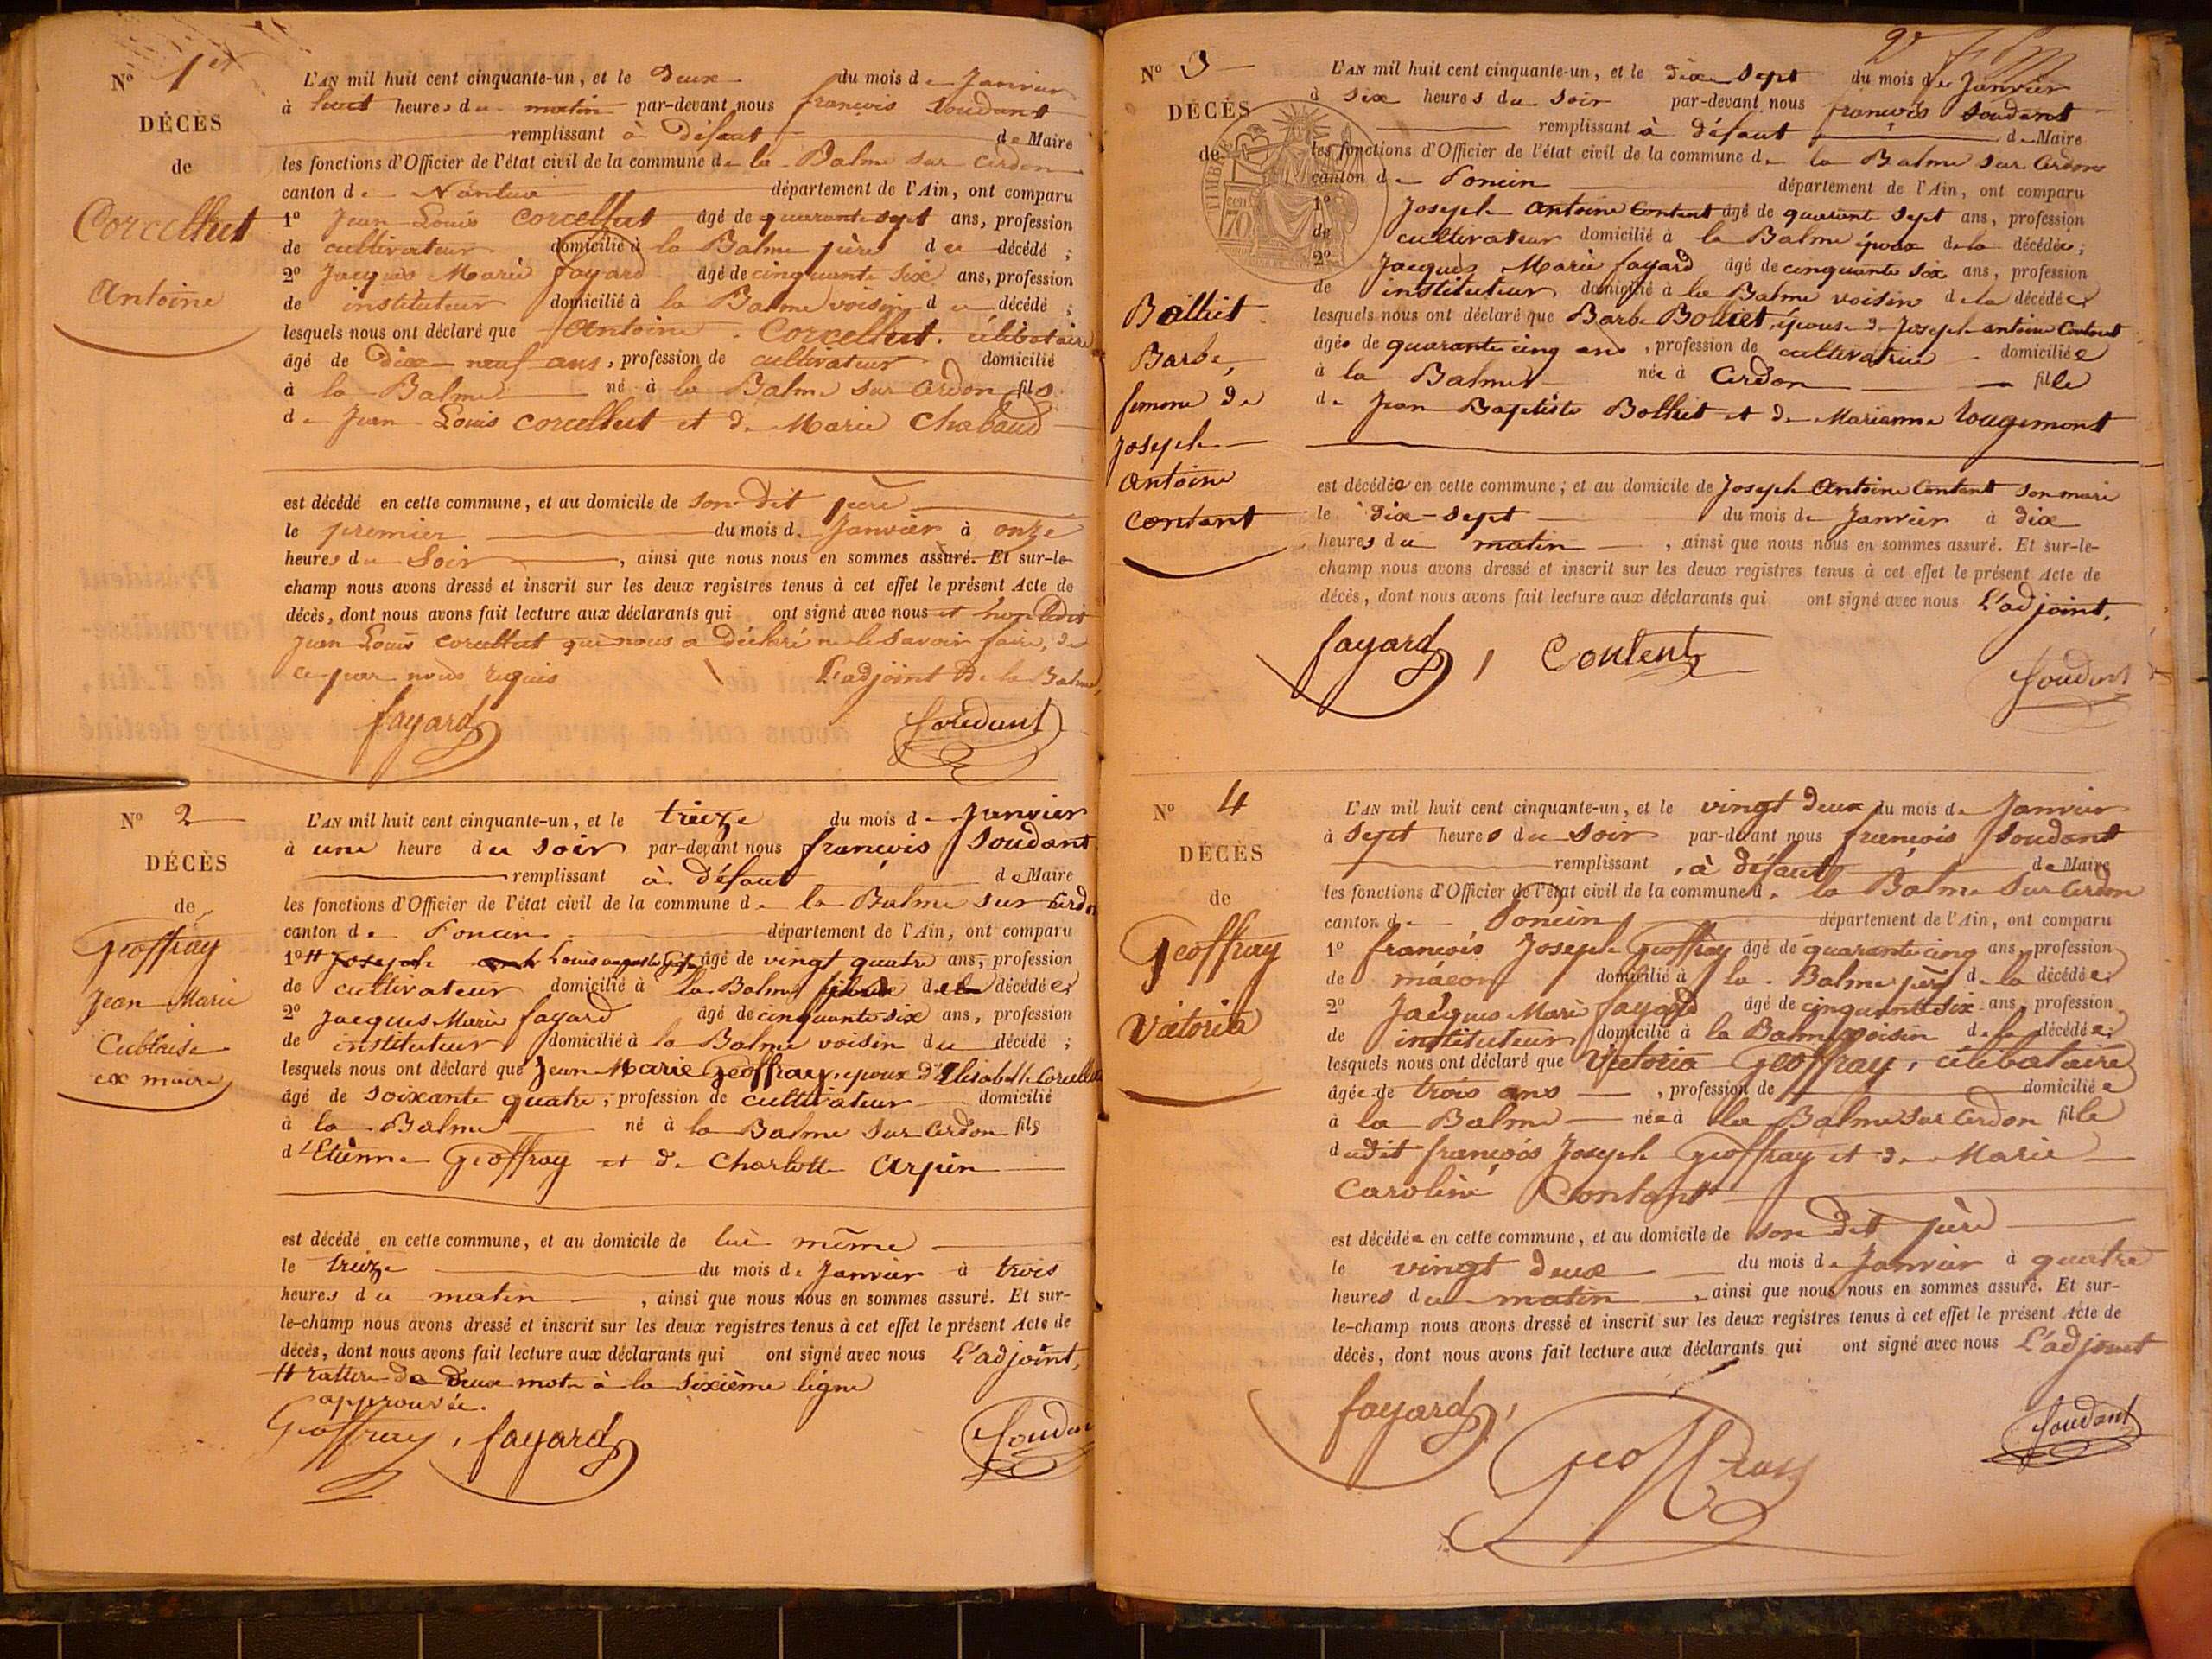 No 1er
DÉCÈS
de
Corcelhut
Antoine
L'AN mil huit cent cinquante-un, et le deux du mois de Janvier
à huit heures du matin par-devant nous françois Soudant
remplissant à défaut de Maire
les fonctions d'Officier de l'état civil de la commune de la Balme sur Cerdon
canton de Nantua département de l'Ain, ont comparu
1o Jean Louis Corcelhut âgé de quarante sept ans, profession
de cultivateur domicilié à la Balme père du décédé ;
2o Jacques Marie fayard âgé de cinquante six ans, profession
de instituteur domicilié à la Balme voisin du décédé ;
lesquels nous ont déclaré que Antoine Corcelhut, célibataire
âgé de dix-neuf ans, profession de cultivateur domicilié
à la Balme né à la Balme sur Cerdon fils
de Jean Louis Corcelhut et de Marie Chabaud
est décédé en cette commune, et au domicile de son dit père
le premier du mois de Janvier à onze
heures du Soir, ainsi que nous nous en sommes assuré. Et sur-le-
champ nous avons dressé et inscrit sur les deux registres tenus à cet effet le présent Acte de
décès, dont nous avons fait lecture aux déclarants qui ont signé avec nous et non ledit
Jean Louis Corcelhut qui nous a déclaré ne le savoir faire, de
ce par nous requis L'adjoint de la Balme,
fayard Soudant
No 2
DÉCÈS
de
Geoffray
Jean Marie
ex maire
L'AN mil huit cent cinquante-un, et le treize du mois de Janvier
à une heure du soir par-devant nous françois Soudant
remplissant à défaut de Maire
les fonctions d'Officier de l'état civil de la commune de la Balme sur Cerdon
canton de Poncin département de l'Ain, ont comparu
1o # Joseph Louis auguste âgé de vingt quatre ans, profession
de cultivateur domicilié à la Balme décédé
2o Jacques Marie fayard âgé de cinquante six ans, profession
de instituteur domicilié à la Balme voisin du décédé ;
lesquels nous ont déclaré que Jean Marie Geoffray, époux d'Elisabeth Corcelhut
âgé de soixante quatre, profession de cultivateur domicilié
à la Balme né à la Balme sur Cerdon fils
d'Etienne Geoffray et de Charlotte Arpin
est décédé en cette commune, et au domicile de lui même
le treize du mois de Janvier à trois
heures du matin, ainsi que nous nous en sommes assuré. Et sur-
le-champ nous avons dressé et inscrit sur les deux registres tenus à cet effet le présent Acte de
décès, dont nous avons fait lecture aux déclarants qui ont signé avec nous L'adjoint,
# rature de deux mots à la sixième ligne
approuvée.
Geoffray, fayard Soudant
No 3
DÉCÈS
de
Bolliet
Barbe,
femme de
Joseph
Antoine
Contant
L'AN mil huit cent cinquante-un, et le dix sept du mois de Janvier
à six heures du soir par-devant nous françois Soudant
remplissant à défaut de Maire
les fonctions d'Officier de l'état civil de la commune de la Balme sur Cerdon
canton de Poncin département de l'Ain, ont comparu
1o Joseph Antoine Contant âgé de quarante sept ans, profession
de cultivateur domicilié à la Balme époux de la décédée ;
2o Jacques Marie fayard âgé de cinquante six ans, profession
de instituteur domicilié à la Balme voisin de la décédée
lesquels nous ont déclaré que Barbe Bolliet, épouse de Joseph antoine Contant
âgée de quarante cinq ans, profession de cultivatrice domiciliée
à la Balme née à Cerdon fille
de Jean Baptiste Bolliet et de Marianne Rougemont
est décédée en cette commune ; et au domicile de Joseph Antoine Contant son mari
le dix-sept du mois de Janvier à dix
heures du matin, ainsi que nous nous en sommes assuré. Et sur-le-
champ nous avons dressé et inscrit sur les deux registres tenus à cet effet le présent Acte de
décès, dont nous avons fait lecture aux déclarants qui ont signé avec nous L'adjoint.
fayard, Contant
Soudant
No 4
DÉCÈS
de
Geoffray
Victoria
L'AN mil huit cent cinquante-un, et le vingt deux du mois de Janvier
à sept heures du soir par-devant nous françois Soudant
remplissant, à défaut de Maire
les fonctions d'Officier de l'état civil de la commune de la Balme sur Cerdon
canton de Poncin département de l'Ain, ont comparu
1o françois Joseph Geoffray âgé de quarante cinq ans, profession
de maçon domicilié à la Balme père de la décédée
2o Jacques Marie fayard âgé de cinquante six ans, profession
de instituteur domicilié à la Balme voisin de la décédée ;
lesquels nous ont déclaré que Victoria Geoffray, célibataire
âgée de trois ans, profession de domiciliée
à la Balme née à la Balme sur Cerdon fille
dudit françois Joseph Geoffray et de Marie
Caroline Contant
est décédée en cette commune, et au domicile de son dit père
le vingt deux du mois de Janvier à quatre
heures du matin, ainsi que nous nous en sommes assuré. Et sur-
le-champ nous avons dressé et inscrit sur les deux registres tenus à cet effet le présent Acte de
décès, dont nous avons fait lecture aux déclarants qui ont signé avec nous L'adjoint
fayard,
Geoffray
Soudant